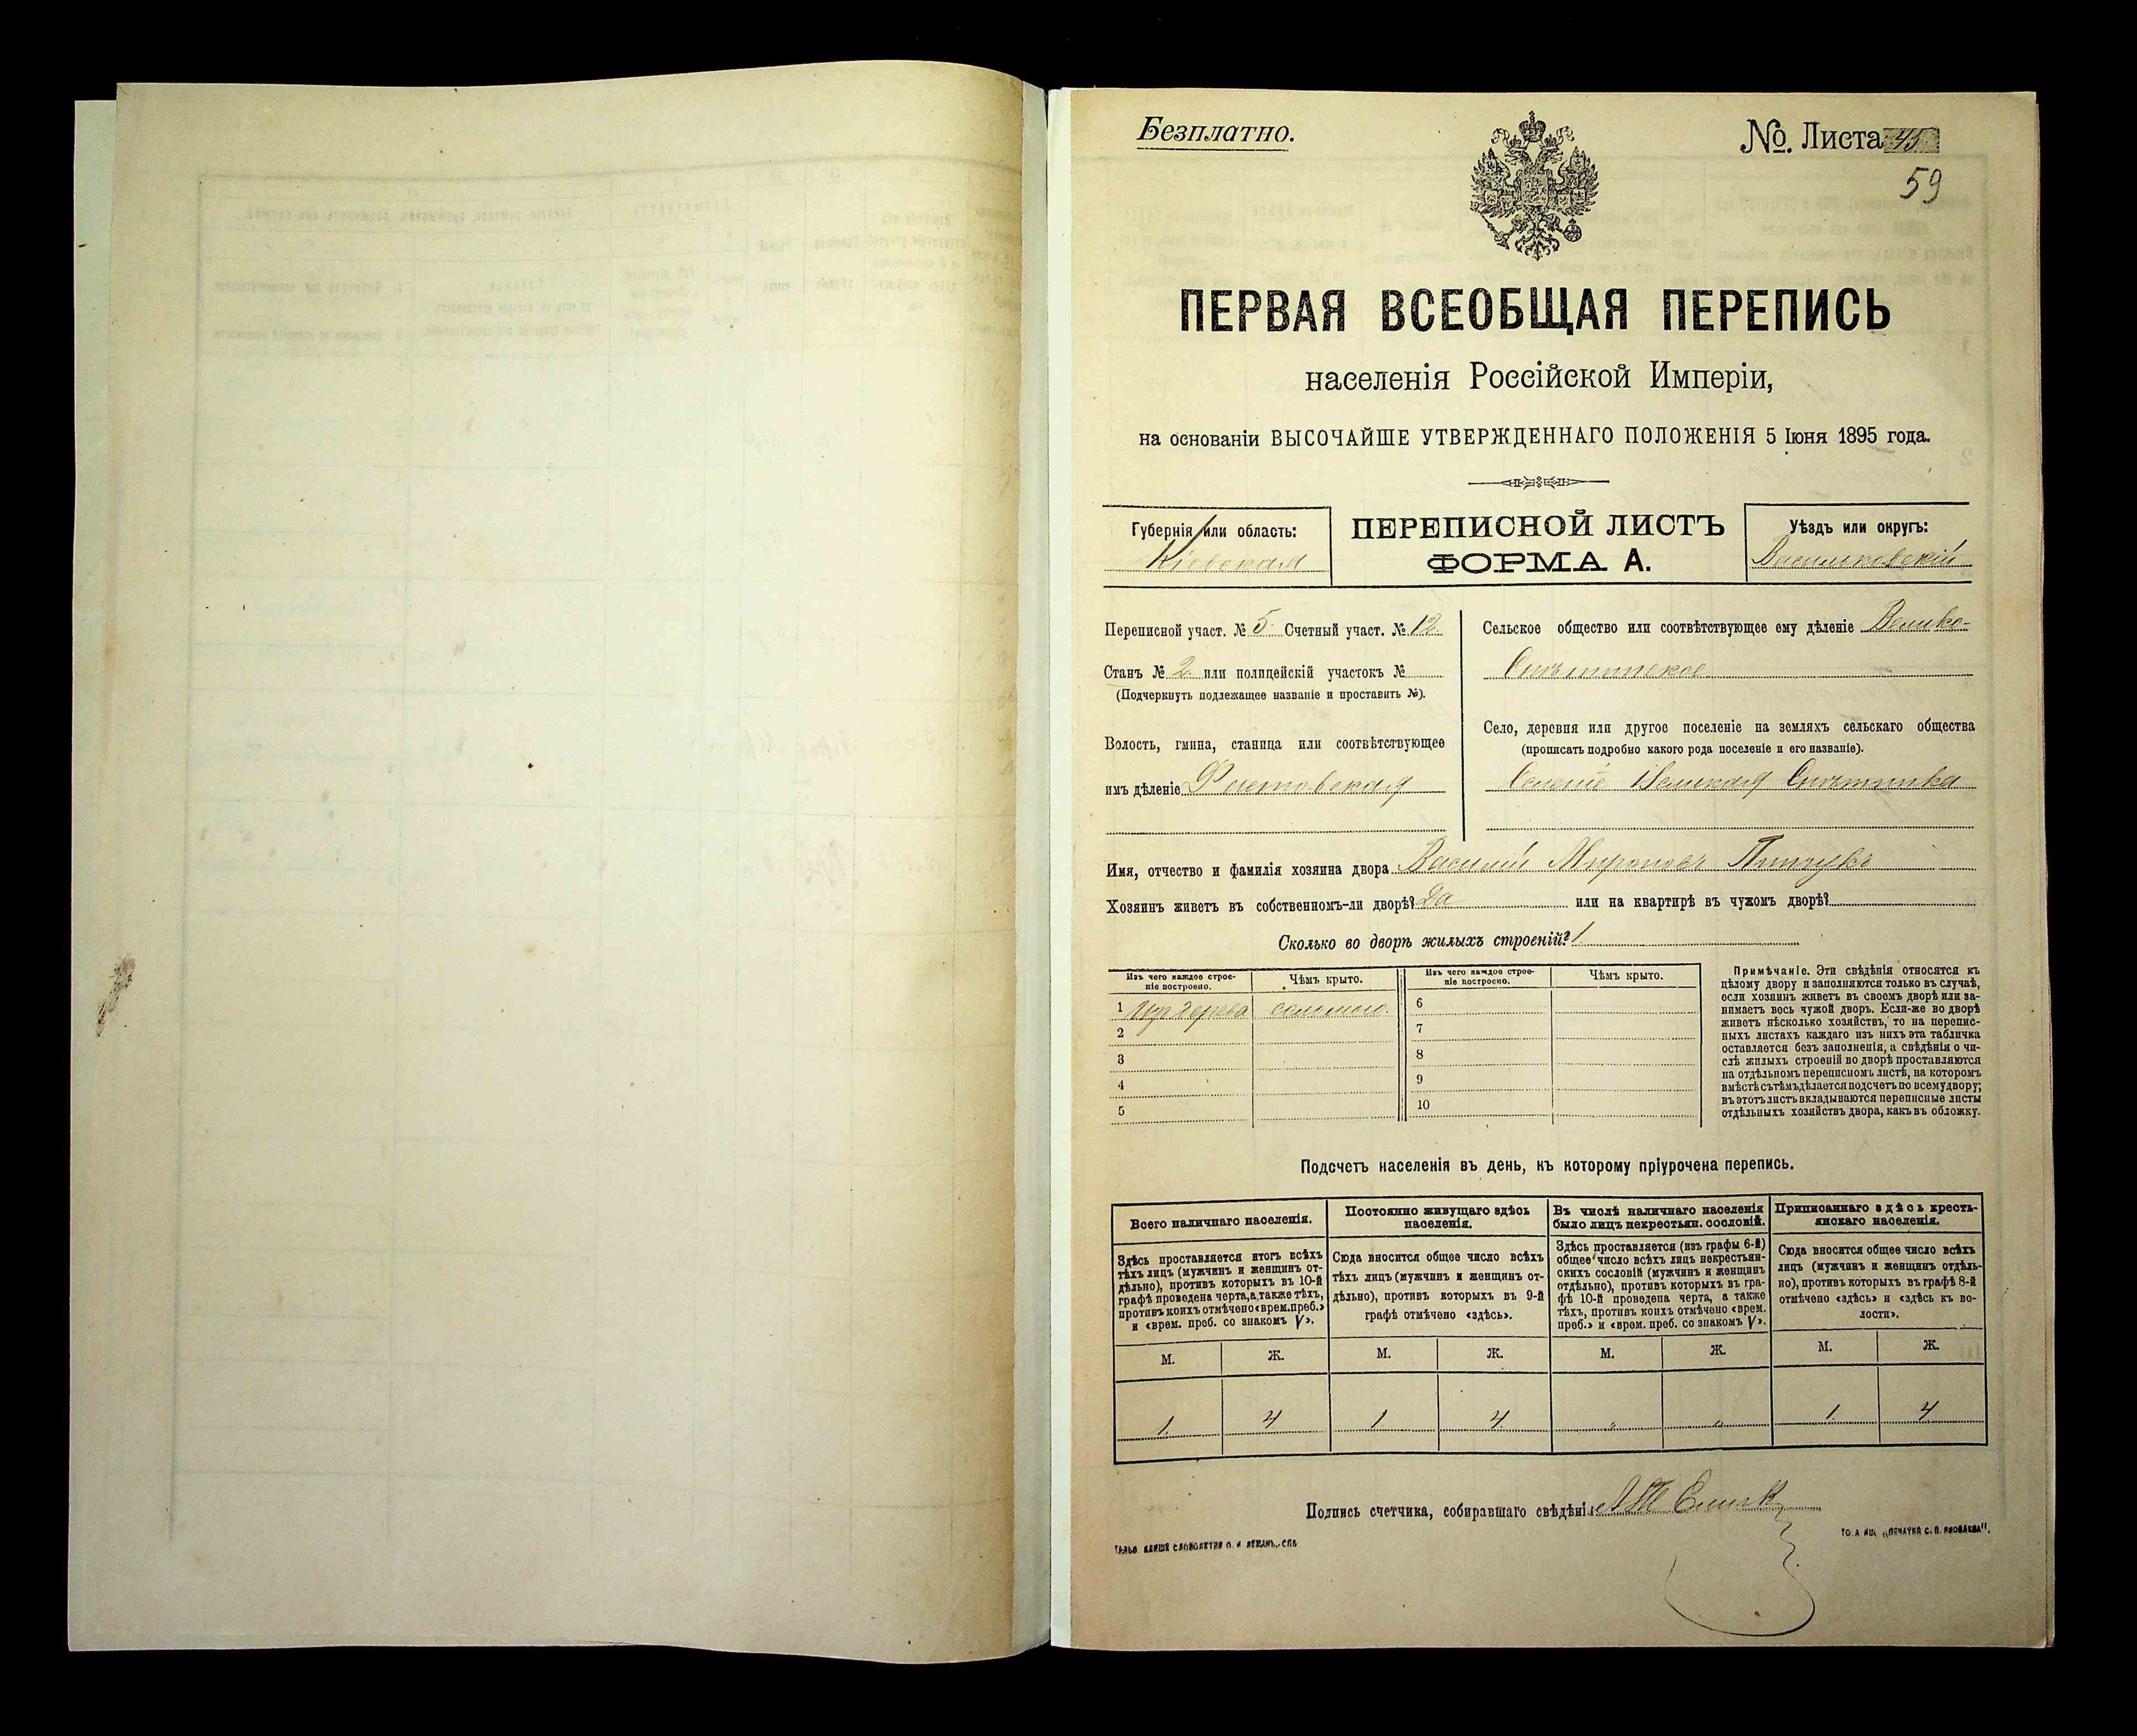 Безплатно.
№. Листа 45
59
ПЕРВАЯ ВСЕОБЩАЯ ПЕРЕПИСЬ
населенія Россійской Имперіи,
на основаніи ВЫСОЧАЙШЕ УТВЕРЖДЕННАГО ПОЛОЖЕНІЯ 5 Іюня 1895 года.
Губернія или область:
Кіевская
ПЕРЕПИСНОЙ ЛИСТЪ
ФОРМА А.
Уѣздъ или округъ:
Васильковскій
Переписной участ. № 5 Счетный участ. № 12
Станъ № 2 или полицейскій участокъ №
(Подчеркнуть подлежащее названіе и проставить №).
Волость, гмина, станица или соотвѣтствующее
имъ дѣленіе Фастовская
Сельское общество или соотвѣтствующее ему дѣленіе Велико-
Снѣтинское
Село, деревня или другое поселеніе на земляхъ сельскаго общества
(прописать подробно какого рода поселеніе и его названіе).
Селеніе Великая Снѣтинка
Имя, отчество и фамилія хозяина двора Василій Мироновъ
Хозяинъ живетъ въ собственномъ-ли дворѣ? Да или на квартирѣ въ чужомъ дворѣ?
Сколько во дворѣ жилыхъ строеній? 1
Изъ чего каждое строе-
ніе построено.
Чѣмъ крыто.
Изъ чего каждое строе-
ніе построено.
Чѣмъ крыто.
1 Изъ дерева соломою.
2
3
4
5
6
7
8
9
10
Примѣчаніе. Эти свѣдѣнія относятся къ
цѣлому двору и заполняются только въ случаѣ,
если хозяинъ живетъ въ своемъ дворѣ или за-
нимаетъ весь чужой дворъ. Если-же во дворѣ
живетъ нѣсколько хозяйствъ, то на перепис-
ныхъ листахъ каждаго изъ нихъ эта табличка
оставляется безъ заполненія, а свѣдѣнія о чи-
слѣ жилыхъ строеній во дворѣ проставляются
на отдѣльномъ переписномъ листѣ, на которомъ
вмѣстѣ съ тѣмъ дѣлается подсчетъ по всему двору;
въ этотъ листъ вкладываются переписные листы
отдѣльныхъ хозяйствъ двора, какъ въ обложку.
Подсчетъ населенія въ день, къ которому пріурочена перепись.
Всего наличнаго населенія.
Здѣсь проставляется итогъ всѣхъ
тѣхъ лицъ (мужчинъ и женщинъ от-
дѣльно), противъ которыхъ въ 10-й
графѣ проведена черта, а также тѣхъ,
противъ коихъ отмѣчено «врем. преб.»
и «врем. преб. со знакомъ V».
Постоянно живущаго здѣсь
населенія.
Сюда вносится общее число всѣхъ
тѣхъ лицъ (мужчинъ и женщинъ от-
дѣльно), противъ которыхъ въ 9-й
графѣ отмѣчено «здѣсь».
Въ числѣ наличнаго населенія
было лицъ некрестьян. сословій.
Здѣсь проставляется (изъ графы 6-й)
общее число всѣхъ лицъ некрестьян-
скихъ сословій (мужчинъ и женщинъ
отдѣльно), противъ которыхъ въ гра-
фѣ 10-й проведена черта, а также
тѣхъ, противъ коихъ отмѣчено «врем.
преб.» и «врем. преб. со знакомъ V».
Приписаннаго здѣсь кресть-
янскаго населенія.
Сюда вносится общее число всѣхъ
лицъ (мужчинъ и женщинъ отдѣль-
но), противъ которыхъ въ графѣ 8-й
отмѣчено «здѣсь» и «здѣсь къ во-
лости».
М. Ж. М. Ж. М. Ж. М. Ж.
1 4 1 4 " " 1 4
Подпись счетчика, собиравшаго свѣдѣнія